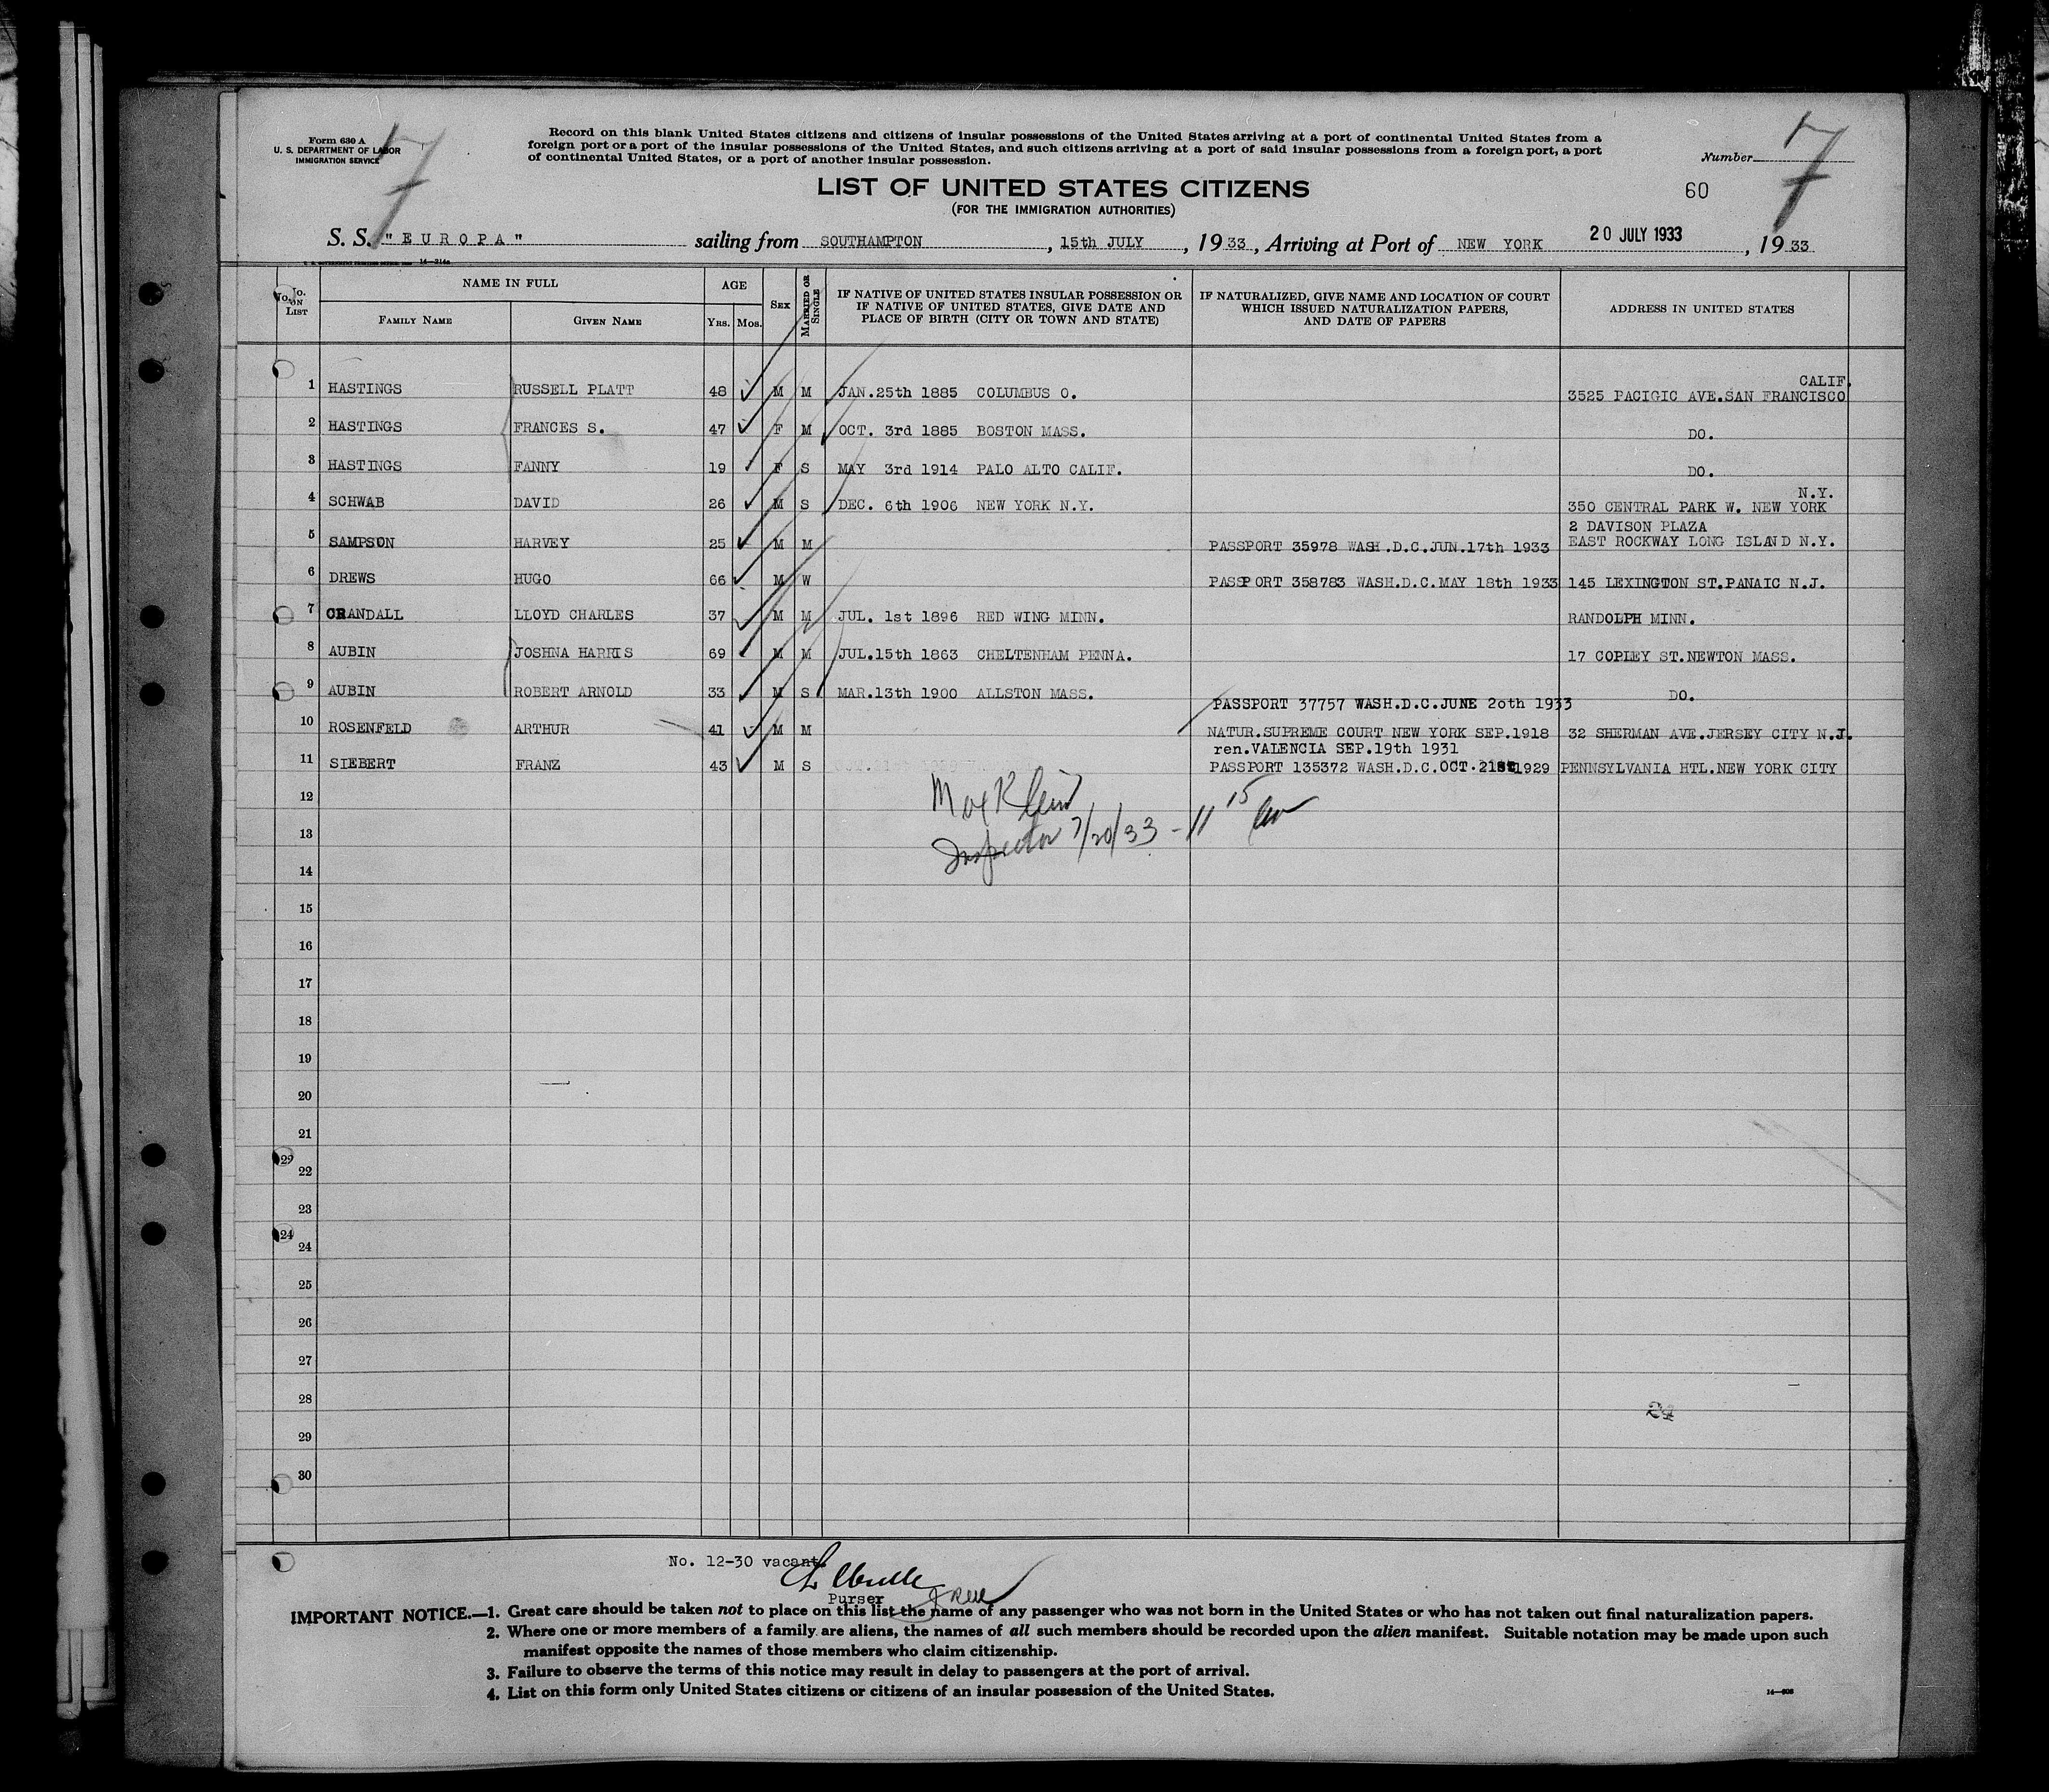 Form 630 A
U. S. DEPARTMENT OF LABOR
IMMIGRATION SERVICE
7
Record on this blank United States citizens and citizens of insular possessions of the United States arriving at a port of continental United States from a
foreign port or a port of the insular possessions of the United States, and such citizens arriving at a port of said insular possessions from a foreign port, a port
of continental United States, or a port of another insular possession.
Number 7
LIST OF UNITED STATES CITIZENS
60
(FOR THE IMMIGRATION AUTHORITIES)
S. S. "EUROPA" sailing from SOUTHAMPTON, 15th JULY, 1933, Arriving at Port of NEW YORK 20 JULY 1933, 1933
No. ON LIST
NAME IN FULL
FAMILY NAME
GIVEN NAME
AGE
YRS. MOS.
SEX
MARRIED OR SINGLE
IF NATIVE OF UNITED STATES INSULAR POSSESSION OR
IF NATIVE OF UNITED STATES, GIVE DATE AND
PLACE OF BIRTH (CITY OR TOWN AND STATE)
IF NATURALIZED, GIVE NAME AND LOCATION OF COURT
WHICH ISSUED NATURALIZATION PAPERS,
AND DATE OF PAPERS
ADDRESS IN UNITED STATES
CALIF.
1 HASTINGS RUSSELL PLATT 48 M M JAN.25th 1885 COLUMBUS O. 3525 PACIGIC AVE.SAN FRANCISCO
2 HASTINGS FRANCES S. 47 F M OCT. 3rd 1885 BOSTON MASS. DO.
3 HASTINGS FANNY 19 F S MAY 3rd 1914 PALO ALTO CALIF. DO.
N.Y.
4 SCHWAB DAVID 26 M S DEC. 6th 1906 NEW YORK N.Y. 350 CENTRAL PARK W. NEW YORK
2 DAVISON PLAZA
5 SAMPSON HARVEY 25 M M PASSPORT 35978 WASH.D.C.JUN.17th 1933 EAST ROCKWAY LONG ISLAND N.Y.
6 DREWS HUGO 66 M W PASSPORT 358783 WASH.D.C.MAY 18th 1933 145 LEXINGTON ST.PANAIC N.J.
7 CRANDALL LLOYD CHARLES 37 M M JUL. 1st 1896 RED WING MINN. RANDOLPH MINN.
8 AUBIN JOSHNA HARRIS 69 M M JUL.15th 1863 CHELTENHAM PENNA. 17 COPLEY ST.NEWTON MASS.
9 AUBIN ROBERT ARNOLD 33 M S MAR.13th 1900 ALLSTON MASS. DO.
PASSPORT 37757 WASH.D.C.JUNE 2oth 1933
10 ROSENFELD ARTHUR 41 M M NATUR.SUPREME COURT NEW YORK SEP.1918 32 SHERMAN AVE.JERSEY CITY N.J.
ren.VALENCIA SEP.19th 1931
11 SIEBERT FRANZ 43 M S PASSPORT 135372 WASH.D.C.OCT.21st1929 PENNSYLVANIA HTL.NEW YORK CITY
12
Inspector 7/20/33 - 11 15 am
13
14
15
16
17
18
19
20
21
22
23
24
25
26
27
28
24
29
30
No. 12-30 vacant
Purser
IMPORTANT NOTICE.—1. Great care should be taken not to place on this list the name of any passenger who was not born in the United States or who has not taken out final naturalization papers.
2. Where one or more members of a family are aliens, the names of all such members should be recorded upon the alien manifest. Suitable notation may be made upon such
manifest opposite the names of those members who claim citizenship.
3. Failure to observe the terms of this notice may result in delay to passengers at the port of arrival.
4. List on this form only United States citizens or citizens of an insular possession of the United States.